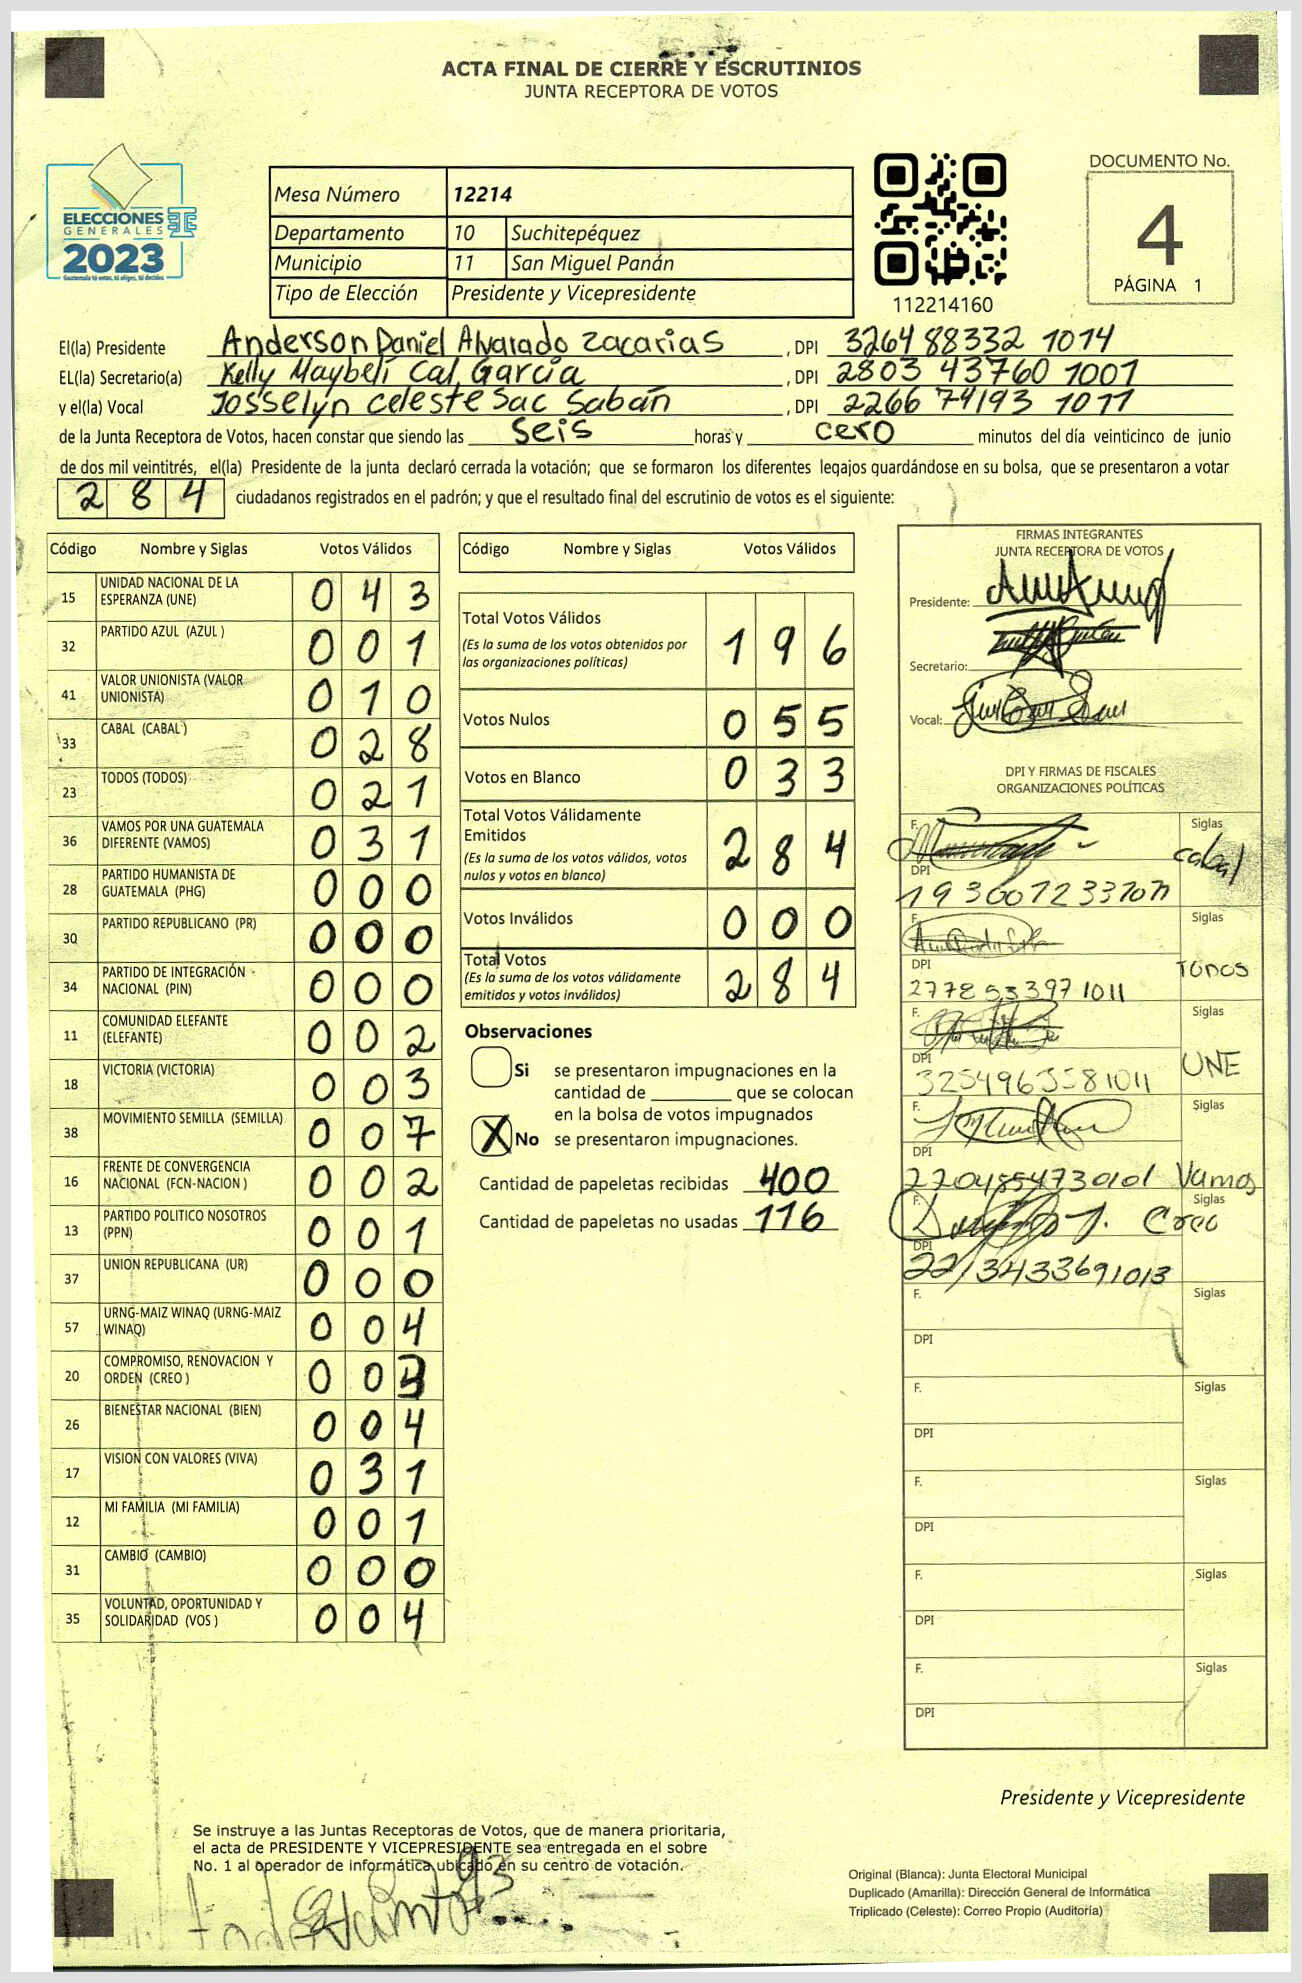 ACTA FINAL DE CIERRE Y ESCRUTINIOS
JUNTA RECEPTORA DE VOTOS
ELECCIONES
GENERALES
2023
Guatemala tú estás, tú eliges, tú decides
Mesa Número 12214
Departamento 10 Suchitepéquez
Municipio 11 San Miguel Panán
Tipo de Elección Presidente y Vicepresidente
112214160
DOCUMENTO No.
4
PÁGINA 1
El(la) Presidente Anderson Daniel Alvarado Zacarias, DPI 3264 88332 1014
EL(la) Secretario(a) Kelly Maybelí Cal García, DPI 2803 43760 1001
y el(la) Vocal Josselyn Celeste Sac Sabán, DPI 2266 74193 1011
de la Junta Receptora de Votos, hacen constar que siendo las seis horas y cero minutos del día veinticinco de junio
de dos mil veintitrés, el(la) Presidente de la junta declaró cerrada la votación; que se formaron los diferentes legajos guardándose en su bolsa, que se presentaron a votar
284 ciudadanos registrados en el padrón; y que el resultado final del escrutinio de votos es el siguiente:
Código Nombre y Siglas Votos Válidos
15 UNIDAD NACIONAL DE LA ESPERANZA (UNE) 043
32 PARTIDO AZUL (AZUL ) 001
41 VALOR UNIONISTA (VALOR UNIONISTA) 010
33 CABAL (CABAL ) 028
23 TODOS (TODOS) 021
36 VAMOS POR UNA GUATEMALA DIFERENTE (VAMOS) 031
28 PARTIDO HUMANISTA DE GUATEMALA (PHG) 000
30 PARTIDO REPUBLICANO (PR) 000
34 PARTIDO DE INTEGRACIÓN NACIONAL (PIN) 000
11 COMUNIDAD ELEFANTE (ELEFANTE) 002
18 VICTORIA (VICTORIA) 003
38 MOVIMIENTO SEMILLA (SEMILLA) 007
16 FRENTE DE CONVERGENCIA NACIONAL (FCN-NACION ) 002
13 PARTIDO POLITICO NOSOTROS (PPN) 001
37 UNION REPUBLICANA (UR) 000
57 URNG-MAIZ WINAQ (URNG-MAIZ WINAQ) 004
20 COMPROMISO, RENOVACION Y ORDEN (CREO ) 003
26 BIENESTAR NACIONAL (BIEN) 004
17 VISION CON VALORES (VIVA) 031
12 MI FAMILIA (MI FAMILIA) 001
31 CAMBIO (CAMBIO) 000
35 VOLUNTAD, OPORTUNIDAD Y SOLIDARIDAD (VOS ) 004
Código Nombre y Siglas Votos Válidos
Total Votos Válidos 196
(Es la suma de los votos obtenidos por
las organizaciones políticas)
Votos Nulos 055
Votos en Blanco 033
Total Votos Válidamente
Emitidos 284
(Es la suma de los votos válidos, votos
nulos y votos en blanco)
Votos Inválidos 000
Total Votos 284
(Es la suma de los votos válidamente
emitidos y votos inválidos)
Observaciones
Si se presentaron impugnaciones en la
cantidad de ________ que se colocan
en la bolsa de votos impugnados
X No se presentaron impugnaciones.
Cantidad de papeletas recibidas 400
Cantidad de papeletas no usadas 116
FIRMAS INTEGRANTES
JUNTA RECEPTORA DE VOTOS
Presidente:
Secretario:
Vocal:
DPI Y FIRMAS DE FISCALES
ORGANIZACIONES POLÍTICAS
F. Siglas
Cabal
DPI
F. Siglas
DPI TODOS
2778 53397 1011
F. Siglas
DPI UNE
F. Siglas
DPI
Vamos
F. Siglas
Creo
DPI
F. Siglas
DPI
F. Siglas
DPI
F. Siglas
DPI
F. Siglas
DPI
F. Siglas
DPI
Presidente y Vicepresidente
Se instruye a las Juntas Receptoras de Votos, que de manera prioritaria,
el acta de PRESIDENTE Y VICEPRESIDENTE sea entregada en el sobre
No. 1 al operador de informática ubicado en su centro de votación.
Original (Blanca): Junta Electoral Municipal
Duplicado (Amarilla): Dirección General de Informática
Triplicado (Celeste): Correo Propio (Auditoría)